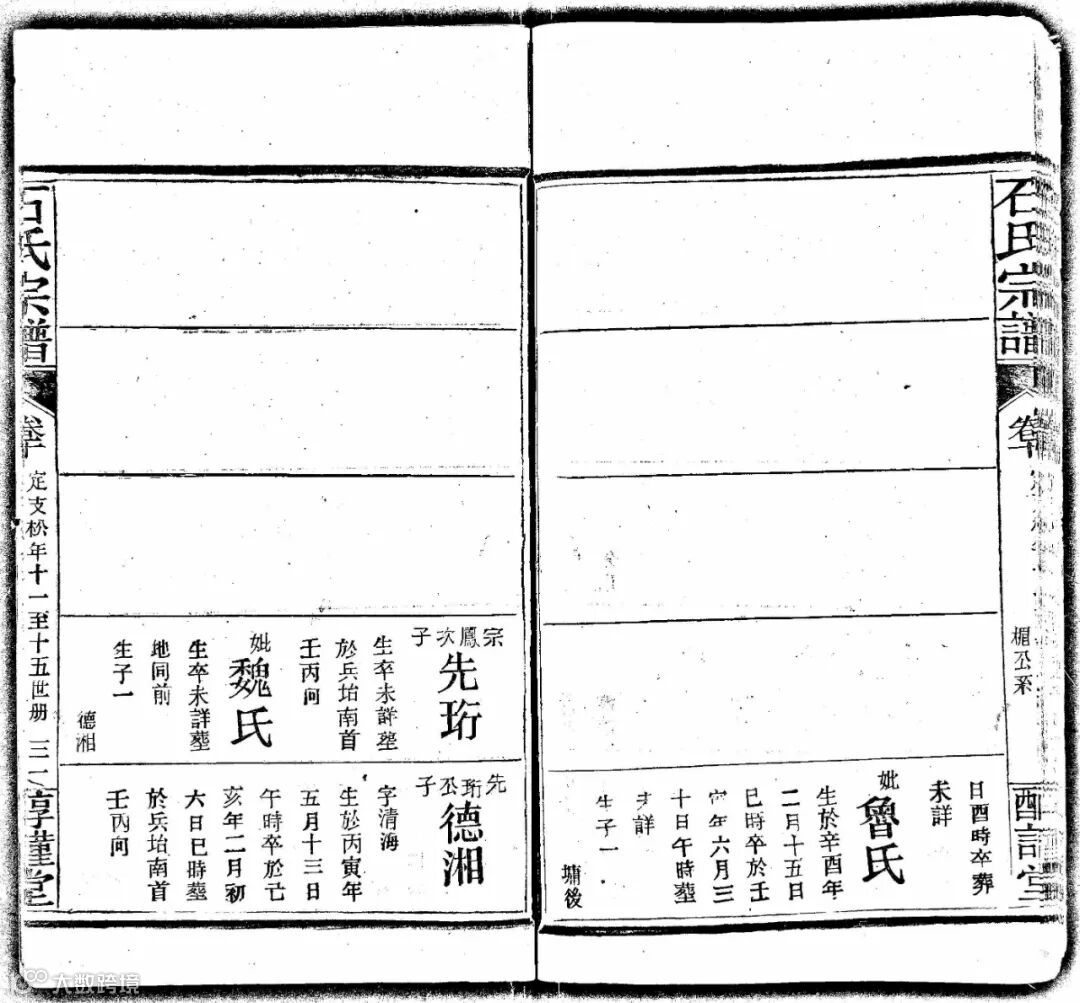 石氏宗譜
卷十
楣公系
日酉時卒葬
未詳
妣
魯氏
生於辛酉年
二月十五日
巳時卒於壬
寅年六月三
十日午時葬
未詳
生子一
墉後
宗鳳次子
先珩
生卒未詳塟
於兵坮南首
壬丙向
妣
魏氏
生卒未詳葬
地同前
生子一
德湘
先珩公子
德湘
字清海
生於丙寅年
五月十三日
午時卒於己
亥年二月初
六日巳時葬
於兵坮南首
壬丙向
石氏宗譜
卷十
定支松年十一至十五世册
三二
惇謹堂
大数跨境